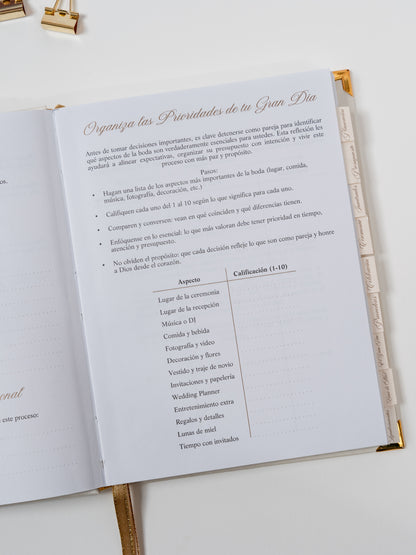 Organiza las Prioridades de tu Gran Día
Antes de tomar decisiones importantes, es clave detenerse como pareja para identificar
qué aspectos de la boda son verdaderamente esenciales para ustedes. Esta reflexión les
ayudará a alinear expectativas, organizar su presupuesto con intención y vivir este
proceso con más paz y propósito.
Pasos:
• Hagan una lista de los aspectos más importantes de la boda (lugar, comida,
música, fotografía, decoración, etc.)
• Califiquen cada uno del 1 al 10 según lo que significa para cada uno.
• Comparen y conversen: vean en qué coinciden y qué diferencias tienen.
• Enfóquense en lo esencial: lo que más valoran debe tener prioridad en tiempo,
atención y presupuesto.
• No olviden el propósito: que cada decisión refleje lo que son como pareja y honre
a Dios desde el corazón.
Aspecto Calificación (1-10)
Lugar de la ceremonia
Lugar de la recepción
Música o DJ
Comida y bebida
Fotografía y video
Decoración y flores
Vestido y traje de novio
Invitaciones y papelería
Wedding Planner
Entretenimiento extra
Regalos y detalles
Lunas de miel
Tiempo con invitados
onal
este proceso: